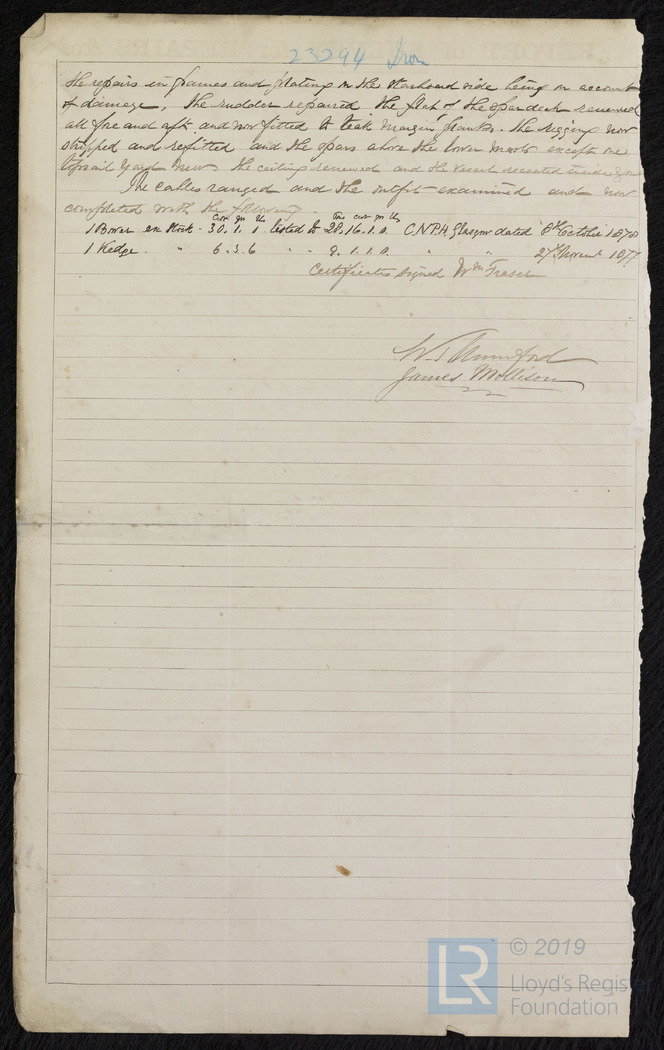 23294 Iron
the repairs in frames and plating on the starboard side being on account
of damage, the rudder repaired the flat of the spardeck renewed
all fore and aft and now fitted to teak margin planks. The rigging now
stripped and refitted and the spars above the lower masts except one
topsail yard new. the ceiling renewed and the vessel cemented inside
The cables ranged and the outfit examined and now
completed with the following.
Cwt qrs lbs Tons cwt qrs lbs
1 Bower ex Stock - 30.1.1 tested to 28.16.1.0. C.N.P.H. Glasgow dated 8th October 1878
1 Kedge. " 6.3.6 " " 9.1.1.0. " " 27th 1877
Certificates signed Wm Fraser
W. T. Mumford
James Mollison
© 2019
LR
Lloyd's Register
Foundation